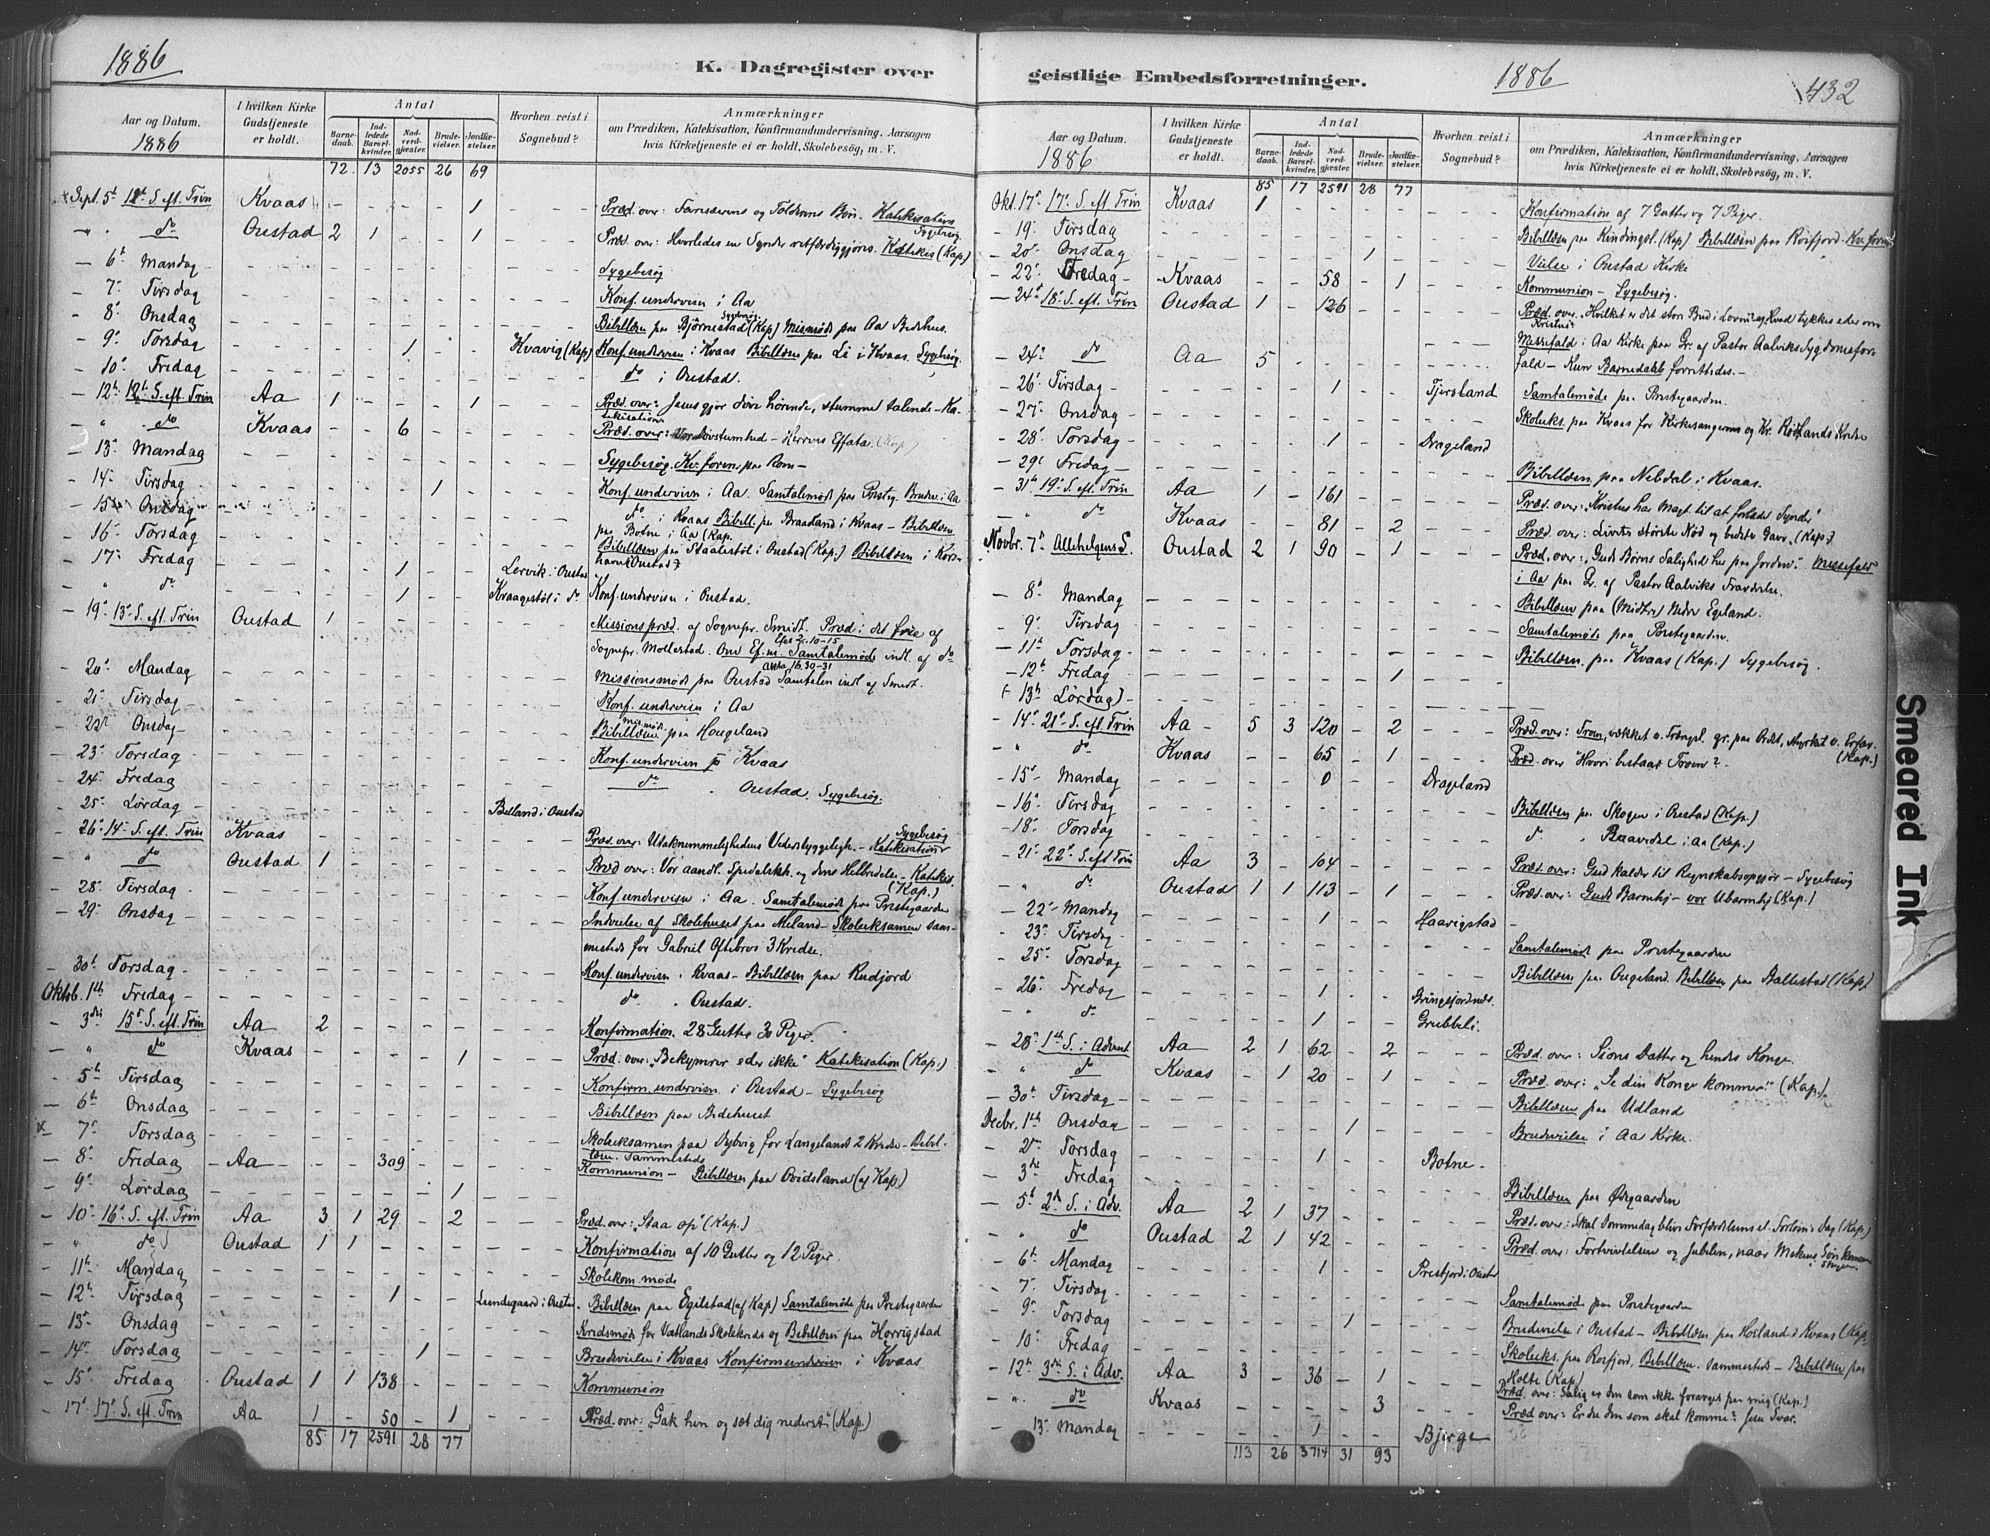 1886
K. Dagregister over
Aar og Datum.
1886
I hvilken Kirke
Gudstjeneste
er holdt.
Antal
Barne-
daab.
Ind-
ledede
Barsel-
kvinder.
Nad-
verd-
gjæster.
Brude-
vielser.
Jordfæ-
stelser.
Hvorhen reist i
Sognebud?
Anmærkninger
om Prædiken, Katekisation, Konfirmandundervisning, Aarsagen
hvis Kirketjeneste ei er holdt, Skolebesøg, m. V.
72 13 2055 26 69
Sept. 5t 11t S. eft. Trin Kvaas - - - - 1 - - - Præd. over: Farisæerens og Tolderens Bøn. Katekisation
" do Oustad 2 1 - - 1 - - - Sygebesøg
Præd. over: Hvorledes en Synder retfærdiggjøres. Katekis (Kap)
6t Mandag Sygebesøg
7de Tirsdag Konf. undervisn i Aa
8t Onsdag Bibellæsn paa Bjørnestad (Kap) Sygebesøg Missmøde paa Aa Bedehus.
9t Torsdag - - 1 - - Kvavig (Kap) Konf. undervisn i Kvaas Bibellæsn paa Li i Kvaas. Sygebesøg.
10t Fredag do i Oustad.
12t 12t S. eft. Trin Aa 1 - - - 1 - - - Præd. over: Jesus gjør døve hørende, stumme talende - Ka-
tekisation
" do Kvaas - - 6 Præd. over: Vor Døvstumhed - Herrens Effata. (Kap)
13t Mandag Sygebesøg. Kv. foren. paa Rom -
14t Tirsdag - - - 1 Konf. undervisn i Aa. Samtalemøde paa Prsteg. Brudev. i Aa
15de Onsdag do i Kvaas Bibell. paa Braadland i Kvaas - Bibellæsn
paa Botne i Aa (Kap.
16t Torsdag Bibellæsn paa Staalestøl i Oustad (Kap.) Bibellæsn i Kors-
havn (Oustad)
17t Fredag - - 1 Lervik i Oustad
" do - - 1 Kraagestøl i do Konf. undervisn i Oustad.
19t 13t S. eft. Trin Oustad 1 Missionspræd. af Sognepr. Smidt. Præd. i det frie af
Efes 2. 10-15
Sognepr. Møllestad. Om Ef.m. Samtalemøde indl. af do
Akta 16.30-31
20t Mandag Missionsmøde paa Oustad Samtalen indl. af Smidt.
21t Tirsdag Konf. undervisn i Aa
22t Onsdag Bibellæsn mis.møde paa Haugeland
23t Torsdag Konf. undervisn i Kvaas
24t Fredag do Oustad. Sygebesøg.
25t Lørdag Belland i Oustad
26t 14t S. eft. Trin Kvaas Sygebesøg
Præd. over: Utaknemmelighedens Vederstyggeligh. - Katekisation
" do Oustad 1 Præd over: Vor aandl. Spedalskh. og dens Helbredelse - Katekis.
(Kap.)
28t Tirsdag Konf. undervisn i Aa. Samtalemøde paa Prstegaarden
29t Onsdag Indvielse af Skolehuset paa Meland - Skoleeksamen sam-
mesteds for Gabriel Oftebros 3 Kredse.
30t Torsdag Konf. undervisn. Kvaas - Bibellæsn paa Rudjord
Oktob. 1te Fredag do. Oustad.
3die 15t S. eft. Trin Aa 2 Konfirmation. 28 Gutter 30 Piger.
" do Kvaas - - - 1 Præd. over: "Bekymrer eder ikke" Katekisation (Kap.)
5t Tirsdag Konfirm. undervisn. i Oustad - Sygebesøg
6t Onsdag Bibellæsn paa Bedehuset
7t Torsdag Skoleeksamen paa Nybvig for Langelands 2 Kredse - Bibel-
læsn sammesteds
8t Fredag Aa - - 309 Kommunion - Bibellæsn paa Ovidsland (af Kap)
9t Lørdag - - - - 1
10t 16t S. eft. Trin Aa 3 1 29 - 2 Præd. over: "Staa op" (Kap.)
" do Oustad 1 1 Konfirmation af 10 Gutter og 12 Piger.
11t Mandag Skolekom.møde
12t Tirsdag - - 1 Lundegaard i Oustad. Bibellæsn paa Egilstad (af Kap) Samtalemøde paa Prstegaarden
13t Onsdag Kredsmøde for Vatlands Skolekreds og Bibellæsn paa Horrigstad
14t Torsdag - - - 1 Brudevielse i Kvaas Konfirmundervisn i Kvaas
15t Fredag Oustad 1 1 138 Kommunion
17t 17t S. eft. Trin Aa 1 - 50 - 1 Præd. over: "Gak hen og sæt dig nederst" (Kap.)
85 17 2591 28 77
geistlige Embedsforretninger.
1886
432
Aar og Datum.
1886
I hvilken Kirke
Gudstjeneste
er holdt.
Antal
Barne-
daab.
Ind-
ledede
Barsel-
kvinder.
Nad-
verd-
gjæster.
Brude-
vielser.
Jordfæ-
stelser.
Hvorhen reist i
Sognebud?
Anmærkninger
om Prædiken, Katekisation, Konfirmandundervisning, Aarsagen
hvis Kirketjeneste ei er holdt, Skolebesøg, m. V.
85 17 2591 28 77
Okt. 17t 17t S. eft Trin Kvaas 1 Konfirmation af 7 Gutter og 7 Piger.
19t Tirsdag Bibellæsn paa Kindingsl. (Kap) Bibellæsn paa Rosfjord - Kv. foren
20t Onsdag - - - 1 Vielse i Oustad Kirke
22t Fredag Kvaas - - 58 - 1 Kommunion - Sygebesøg.
24t 18t S. eft Trin Oustad 1 - 126 Præd. over: "Hvilket er det store Bud i Loven og Hvad tykkes eder om
Kristus"
24t do Aa 5 Messefald i Aa Kirke paa Gr. af Pastor Aalviks Sygdomsfor-
fald - Kun Barnedaab forrettedes. -
26t Tirsdag - - 1 Tjersland Samtalemøde paa Prstegaarden.
27t Onsdag Skoleeks. paa Kvaas for Kirkesangerens og Kr. Røislands Kredse
28t Torsdag - - 1 Drageland
29t Fredag Bibellæsn. paa Nebdal i Kvaas.
31t 19t S. eft. Trin Aa 1 - 161 Præd. over: "Kristus har Magt til at forlade Synder"
" do Kvaas - - 81 - 2 Præd. over: Livets største Nød og bedste Gave. (Kap.)
Novbr. 7t Allehelgens S. Oustad 2 1 90 - 1 Præd. over: "Guds Børns Salighed her paa Jorden". Messefald
i Aa paa Gr. af Pastor Aalviks Fraværelse.
8t Mandag Bibellæsn paa (Midtre) Nedre Egeland.
9t Tirsdag Samtalemøde paa Prstegaarden.
11t Torsdag Bibellæsn. paa Kvaas (Kap.) Sygebesøg.
12t Fredag - - - - 1
(- 13t Lørdag)
14t 21t S. eft. Trin Aa 5 3 120 - 2 Præd. over: Troen, vækket v. Trængsl. gr. paa Ordet, styrket v. Erfar.
" do Kvaas - - 65 - 1 Præd. over Hvori bestaar Troen? - (Kap.)
15t Mandag - - 0 Drageland
16t Tirsdag Bibellæsn paa Skogen i Oustad (Kap.)
18t Torsdag do " Raavdal i Aa (Kap.)
21t 22t S. eft Trin Aa 3 - 104 Præd. over: Gud kalder til Regnskabsopgjør - Sygebesøg
" do Oustad 1 1 113 - 1 Præd. over: Guds Barmhj - vor Ubarmhj (Kap.)
22t Mandag - - 1 Haarigstad
23t Tirsdag Samtalemøde paa Prstegaarden
25t Torsdag Bibellæsn paa Ougeland. Bibellæsn paa Hallestad (Kap)
26t Fredag - - 1 Gringsfjordnes.
" do - - 1 Grubbeli.
28t 1te S. i Advent Aa 2 1 62 - 2 Præd. over: Sions Datter og hendes Konge.
" do Kvaas - 1 20 - 1 Præd. over: "Se din Konge kommer!" (Kap.)
30t Tirsdag Bibellæsn paa Udland
Decbr. 1te Onsdag - - - 1 Brudevielse i Aa Kirke.
2t Torsdag - - 1 Botne -
3die Fredag Bibellæsn paa Ødegaarden
5t 2d. S. i Adv. Aa 2 1 37 Præd. over: Skal Dommedag blive Forfærdelsens el. Forløsn.s Dag (Kap)
" do Oustad 2 1 42 Præd. over: Fortvivlelsen og Jubelen, naar Mskens Søn kommer
i Skyen.
6t Mandag - - 1 Prestfjord i Oustad
7t Tirsdag Samtalemøde paa Prstegaarden
9t Torsdag - - - 1 Brudevielse i Oustad - Bibellæsn. paa Hoiland i Kvaas (Kap.
10t Fredag Skoleeks. paa Rosfjord, Bibellæsn. sammesteds - Bibellæsn paa
Holte (Kap)
12t 3die S. i Adv. Aa 3 - 36 - 1 Præd. over: Salig er den som ikke forarges paa mig (Kap.)
" do Kvaas - - - - 3 Præd over: Er du den som skal komme? Jesu Svar.
13t Mandag - - 1 Bjerge
113 26 3714 31 93
Smeared Ink